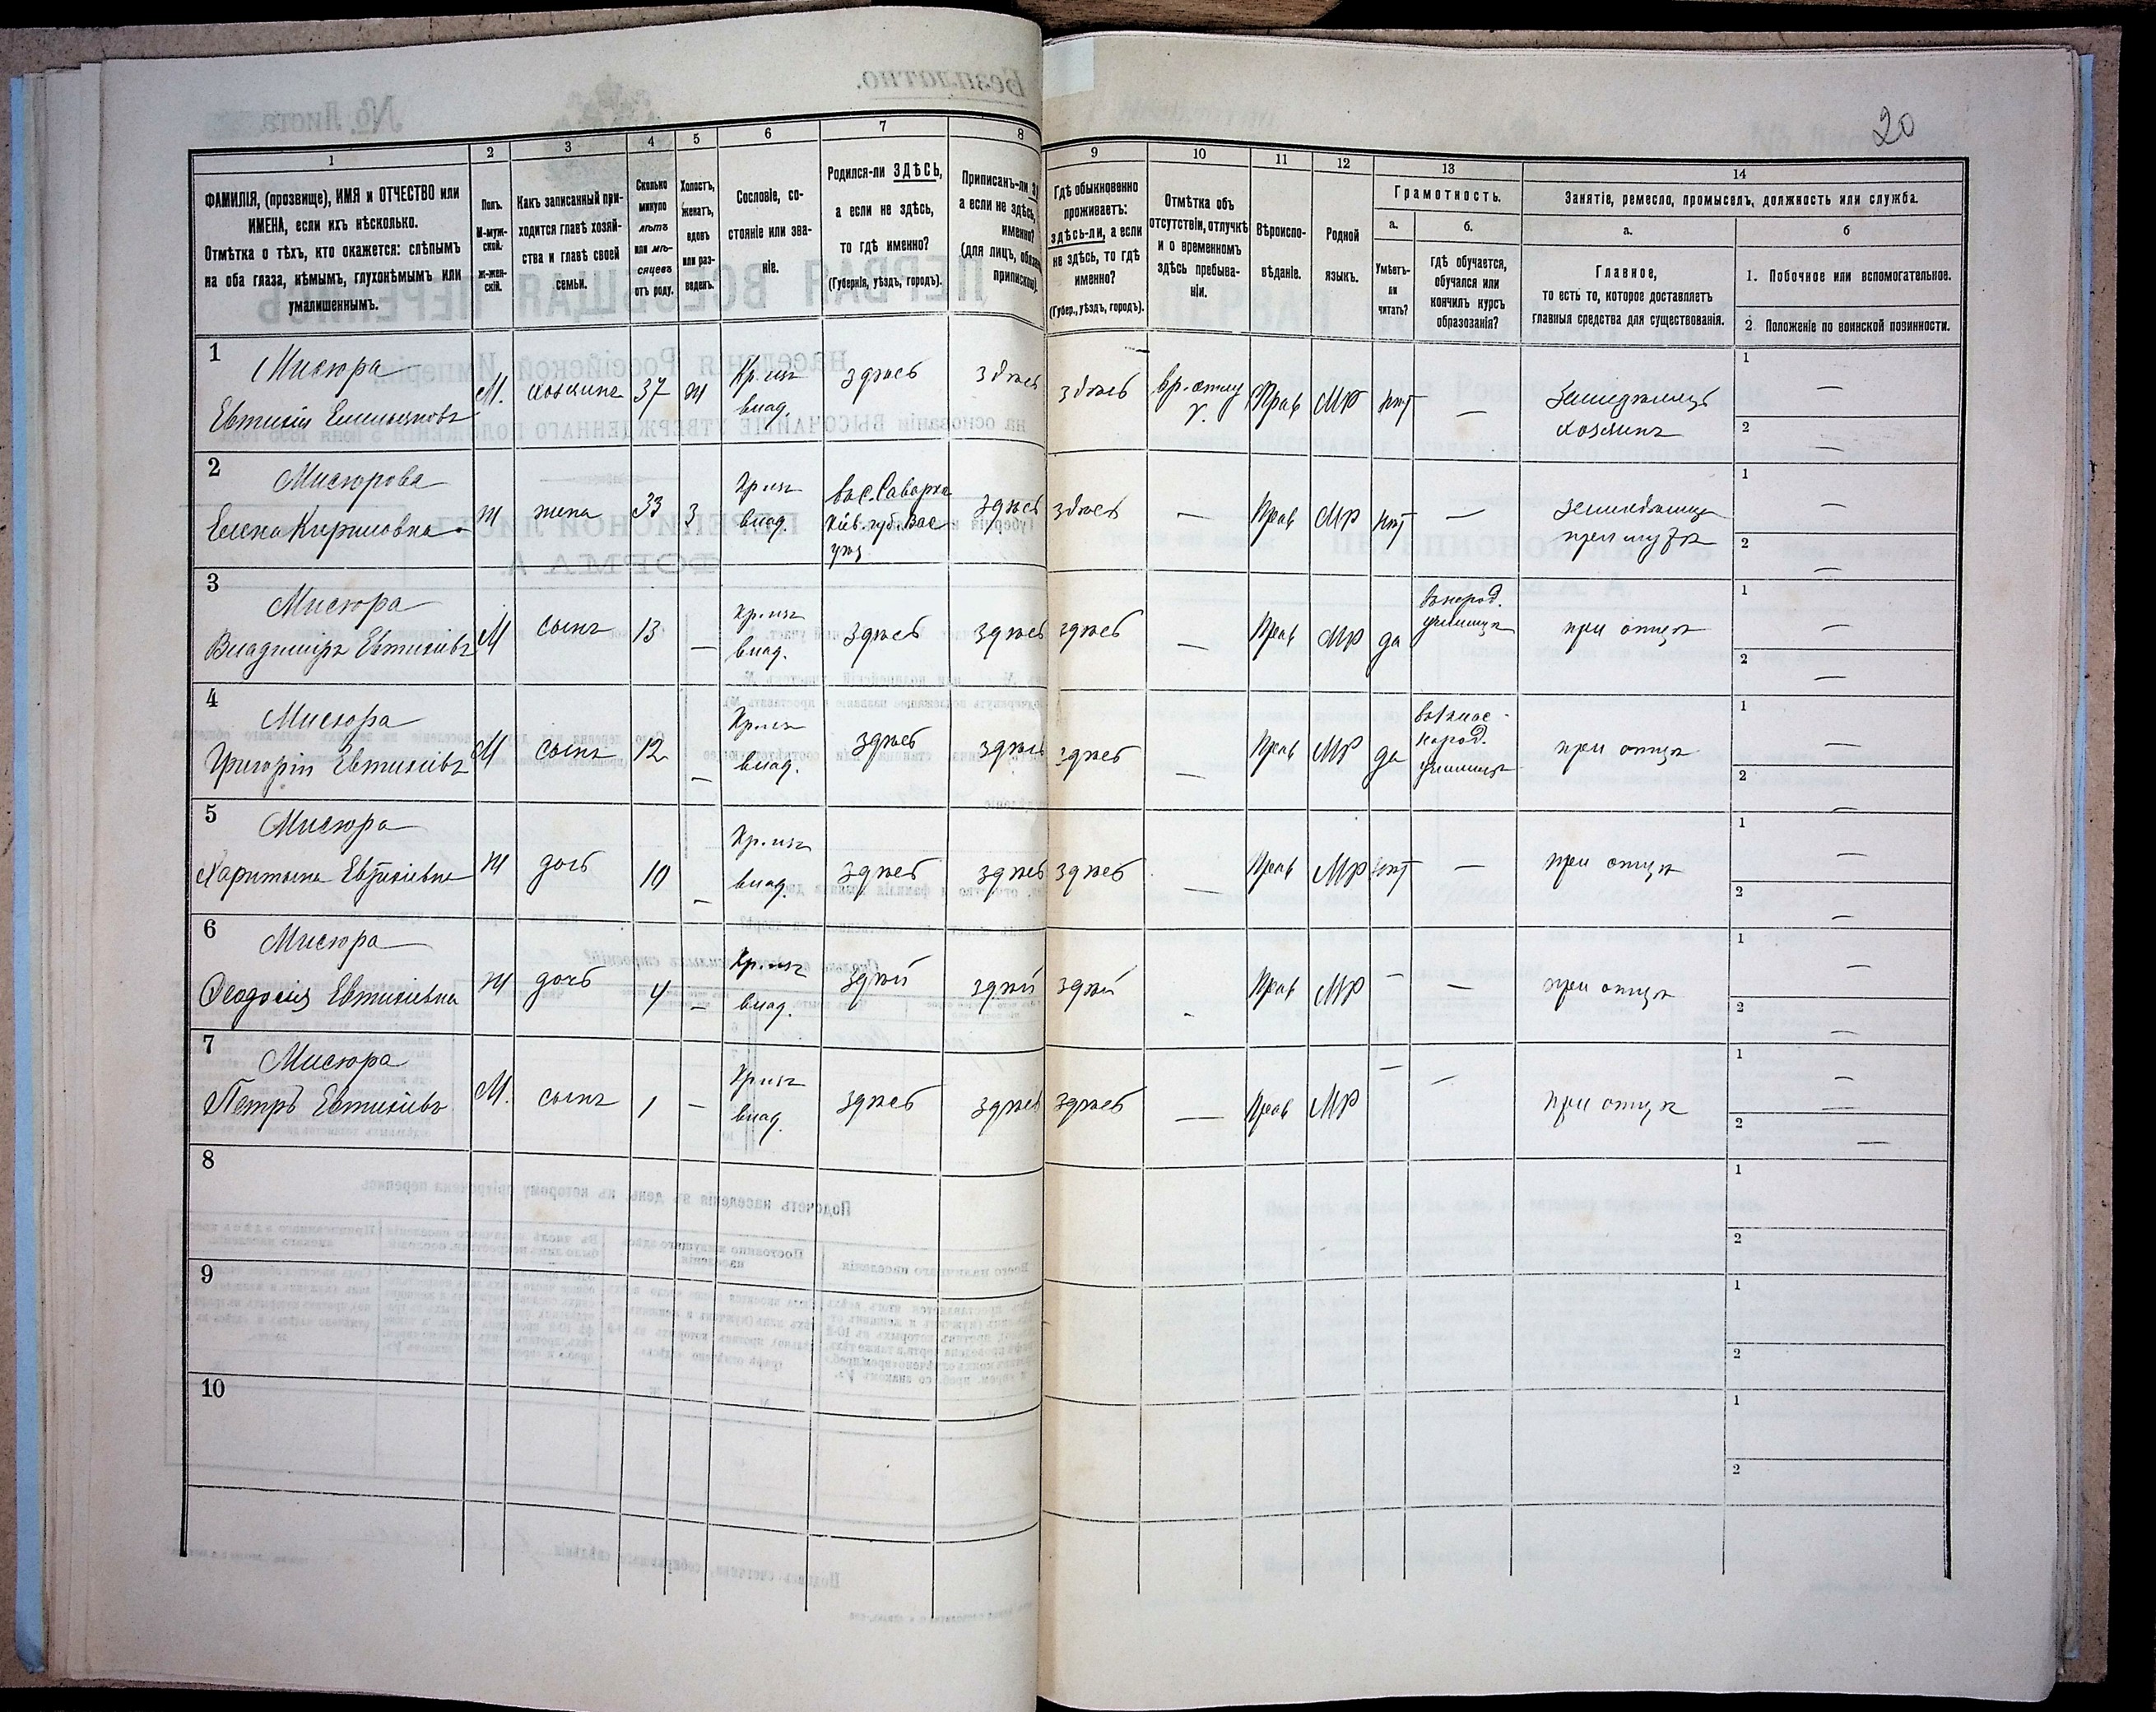 20
1
2
3
4
5
6
7
8
9
10
11
12
13
14
ФАМИЛІЯ, (прозвище), ИМЯ и ОТЧЕСТВО или
ИМЕНА, если ихъ нѣсколько.
Отмѣтка о тѣхъ, кто окажется: слѣпымъ
на оба глаза, нѣмымъ, глухонѣмымъ или
умалишеннымъ.
Полъ.
М-муж-
ской.
ж-жен-
скій.
Какъ записанный при-
ходится главѣ хозяй-
ства и главѣ своей
семьи.
Сколько
минуло
лѣтъ
или мѣ-
сяцевъ
отъ роду.
Холостъ,
женатъ,
вдовъ
или раз-
веденъ.
Сословіе, со-
стояніе или зва-
ніе.
Родился-ли ЗДѢСЬ,
а если не здѣсь,
то гдѣ именно?
(Губернія, уѣздъ, городъ).
Приписанъ-ли
а если не здѣсь,
именно?
(для лицъ,
припискою).
Гдѣ обыкновенно
проживаетъ:
здѣсь-ли, а если
не здѣсь, то гдѣ
именно?
(Губер., уѣздъ, городъ).
Отмѣтка объ
отсутствіи, отлучкѣ
и о временномъ
здѣсь пребыва-
ніи.
Вѣроиспо-
вѣданіе.
Родной
языкъ.
Грамотность.
а.
Умѣетъ-
ли
читать?
б.
гдѣ обучается,
обучался или
кончилъ курсъ
образованія?
Занятіе, ремесло, промыселъ, должность или служба.
а.
Главное,
то есть то, которое доставляетъ
главныя средства для существованія.
б
1. Побочное или вспомогательное.
2 Положеніе по воинской повинности.
1
Мисюра
Евтихій Емельяновъ
М. хозяинъ 37 ж Кр. изъ влад. здѣсь здѣсь здѣсь Вр. отлу У. Прав МР нѣт — Земледѣлецъ хозяинъ 1 — 2 —
2
Мисюрова
Елена Кириловна
ж жена 33 з Кр изъ влад. Вас. Саварка Кіев. губ. Вас уѣз здѣсь здѣсь — Прав МР нѣт — земледѣлица при мужѣ 1 — 2 —
3
Мисюра
Владиміръ Евтихіевъ
М сынъ 13 — Кр. изъ влад. здѣсь здѣсь здѣсь — Прав МР да въ народ. училищѣ при отцѣ 1 — 2 —
4
Мисюра
Григорій Евтихіевъ
М сынъ 12 — Кр. изъ влад. здѣсь здѣсь здѣсь — Прав МР да народ. училищѣ при отцѣ 1 — 2 —
5
Мисюра
Харитына Евтихіевна
ж дочь 10 — Кр. изъ влад. здѣсь здѣсь здѣсь — Прав МР нѣт — при отцѣ 1 — 2 —
6
Мисюра
Ѳеодосія Евтихіевна
ж дочь 4 — Кр. изъ влад. здѣсь здѣсь здѣсь - Прав МР — — при отцѣ 1 — 2 —
7
Мисюра
Петръ Евтихіевъ
М. сынъ 1 — Кр изъ влад. здѣсь здѣсь здѣсь — Прав МР — — при отцѣ 1 — 2 —
8
1
2
9
1
2
10
1
2